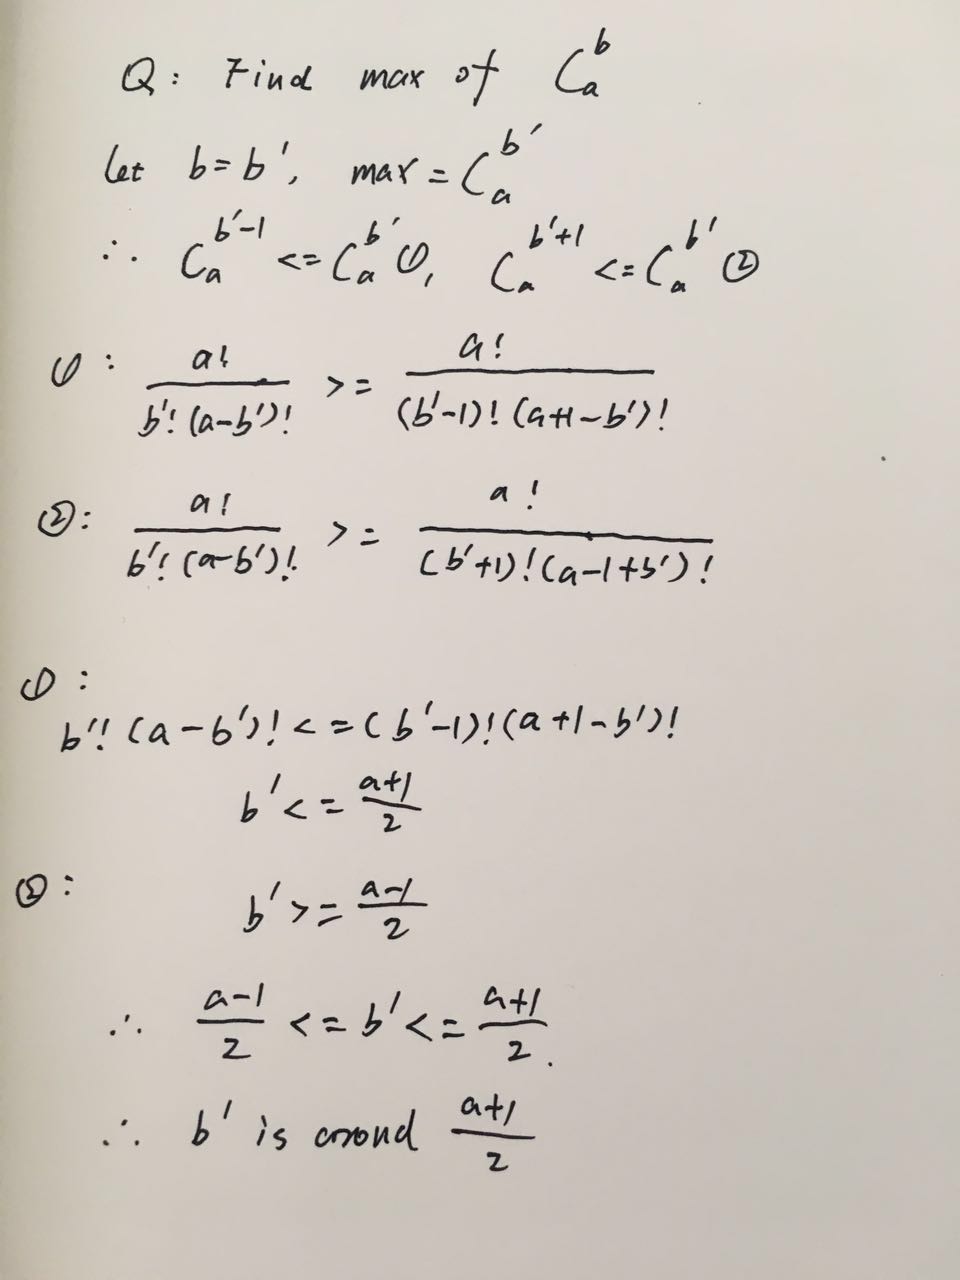 Q: Find max of C_a^b
Let b=b', max = C_a^{b'}
∴ C_a^{b'-1} <= C_a^{b'} ①, C_a^{b'+1} <= C_a^{b'} ②
①: \frac{a!}{b'!(a-b')!} >= \frac{a!}{(b'-1)!(a+1-b')!}
②: \frac{a!}{b'!(a-b')!} >= \frac{a!}{(b'+1)!(a-1+b')!}
①:
b'!(a-b')! <= (b'-1)!(a+1-b')!
b' <= \frac{a+1}{2}
②: b' >= \frac{a-1}{2}
∴ \frac{a-1}{2} <= b' <= \frac{a+1}{2}.
∴ b' is around \frac{a+1}{2}